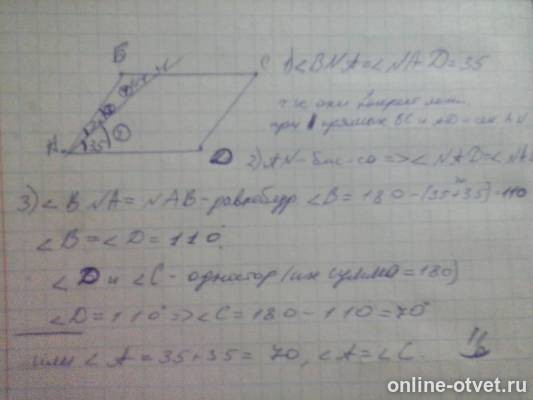 Б
N
С
А
35
D
1) <BNA=<NAD=35
т.к. они
при прямых BC и AD
2) AN-бис-са => <NAD=<NA
3) <BNA=NAB-равнобедр <B=180-(35+35)=110
<B=<D=110°
<D и <C-одностор (их сумма=180)
<D=110°=> <C=180-110=70°
или <A=35+35=70, <A=<C.
online-otvet.ru